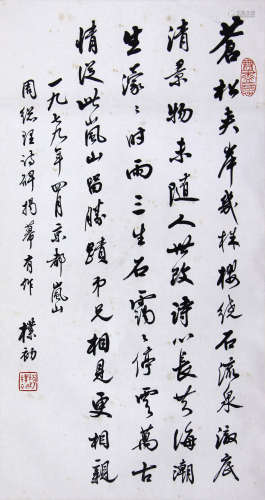 蒼松夾岸幾株櫻繞石流泉澈底
清景物未隨人世改詩心長共海潮
生濛々時雨三生石靄々停雲萬古
情從此嵐山留勝蹟弟兄相見更相親
一九七九年四月京都嵐山
周總理詩碑揭幕有作 樸初